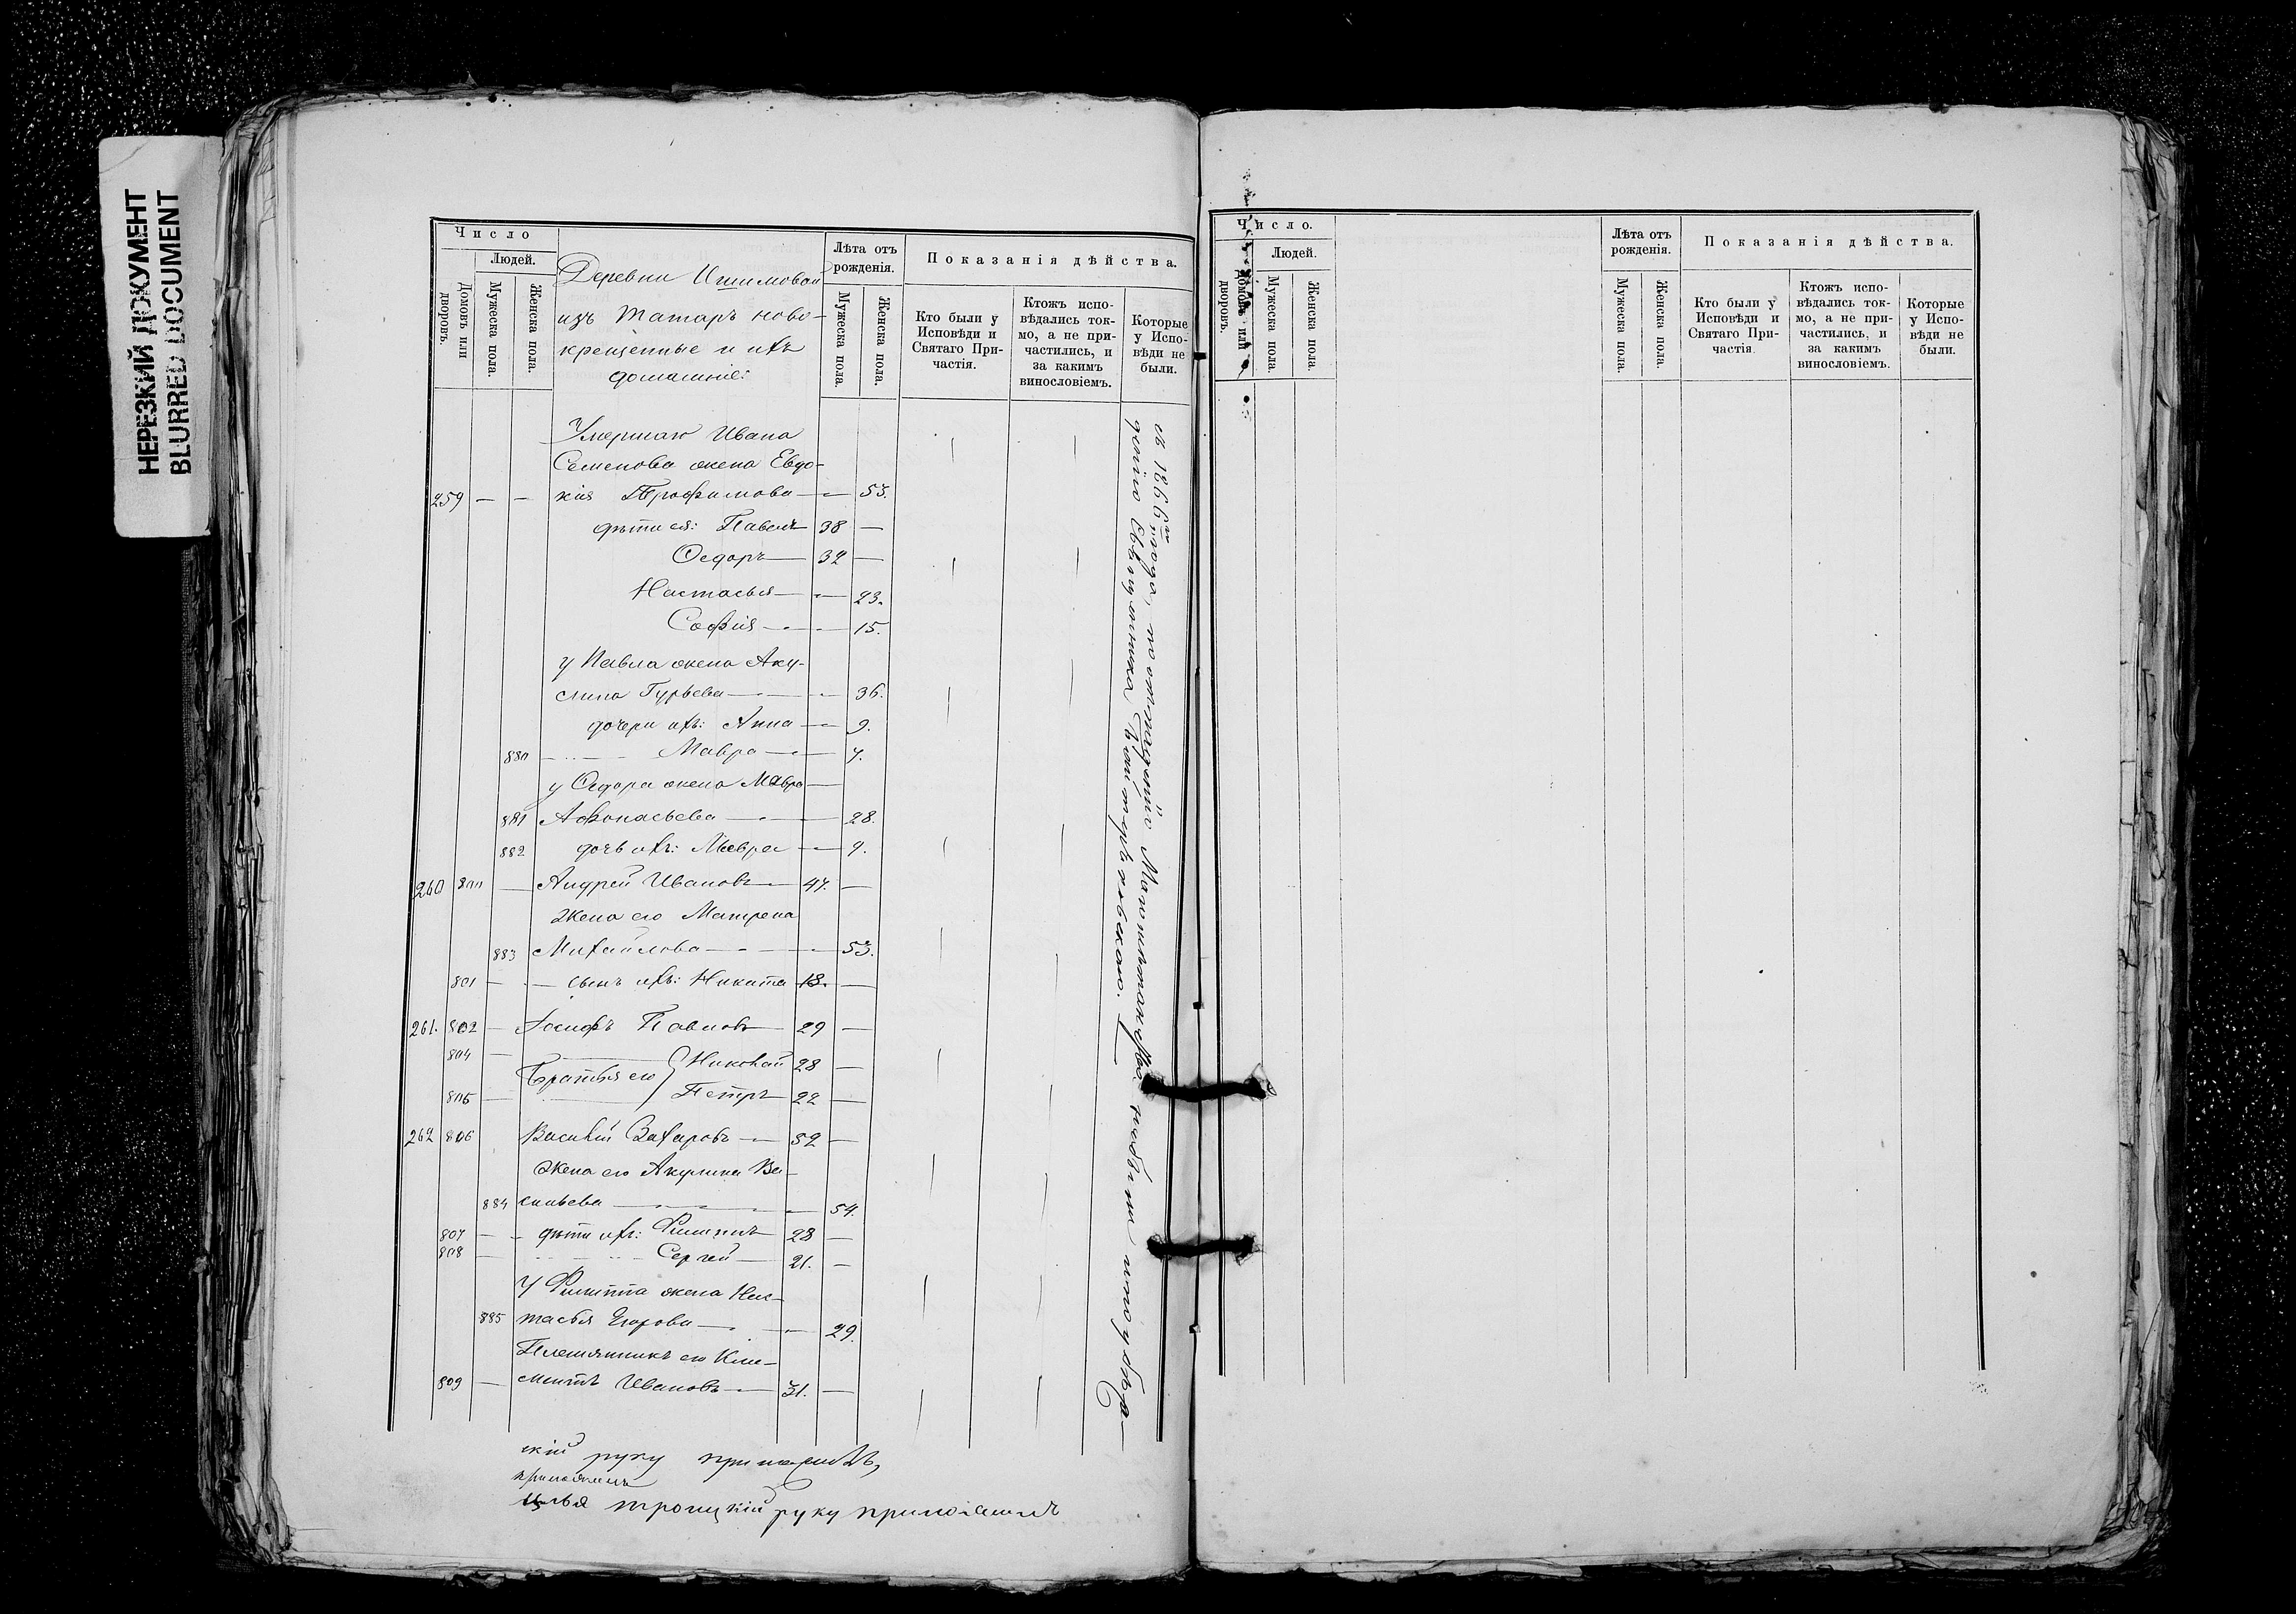 НЕРЕЗКИЙ ДОКУМЕНТ
BLURRED DOCUMENT
Число
Людей.
Домовъ или дворовъ.
Мужеска пола.
Женска пола.
Деревни Ишимовой
изъ Татаръ ново-
крещенные и ихъ
домашніе:
Лѣта отъ рожденія.
Мужеска пола.
Женска пола.
Показанія дѣйства.
Кто были у Исповѣди и Святаго Причастія.
Ктожъ исповѣдались токмо, а не причастились, и за какимъ винословіемъ.
Которые у Исповѣди не были.
Умершаго Ивана
Семенова жена Евдо-
259 — — кія Трофимова — 53.
дѣти ея: Павелъ 38 —
Ѳедоръ 32 —
Настасья — 23.
Софія — 15.
у Павла жена Аку-
лина Гурьева — 36.
дочери ихъ: Анна — 9.
880 Мавра — 7.
у Ѳедора жена Мавра
881 Афонасьева — 28.
882 дочь ихъ: Мавра — 9.
260 800 — Андрей Ивановъ 47. —
Жена его Матрена
883 Михайлова — 53.
801 — сынъ ихъ: Никита 18. —
261. 802 — Іосифъ Павловъ 29 —
804 — Братья его Николай 28 —
805 — Петръ 22 —
262 806 Василій Захаровъ 52 —
Жена его Акулина Ва-
884 сильева — 54.
807 — дѣти ихъ: Филиппъ 28 —
808 — Сергей 21. —
У Филиппа жена Нас-
885 тасья Егорова — 29.
Племянникъ его Кли-
809 — ментъ Ивановъ 31. —
съ 1866го года,
кій руку приложилъ,
Илья Троицкій руку приложилъ
Число.
Людей.
Домовъ или дворовъ.
Мужеска пола.
Женска пола.
Лѣта отъ рожденія.
Мужеска пола.
Женска пола.
Показанія дѣйства.
Кто были у Исповѣди и Святаго Причастія
Ктожъ исповѣдались токмо, а не причастились, и за какимъ винословіемъ.
Которые у Исповѣди не были.